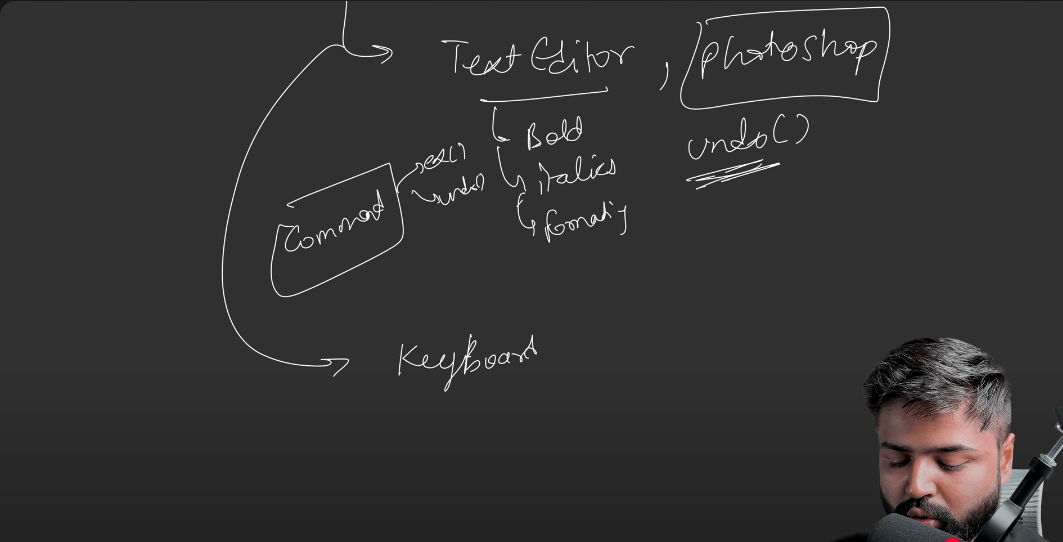 Text Editor , Photoshop
undo()
Bold
Italics
Formatting
Command
exe()
undo()
Keyboard